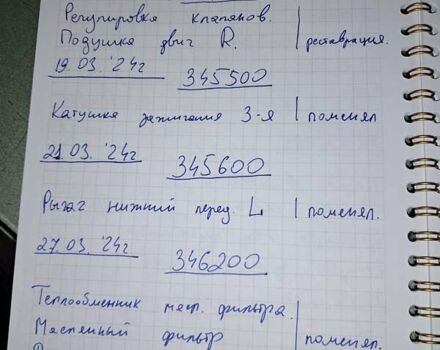 Регулировка клапанов.
Подушка двиг R. | реставрация.
19.03.'24г 345500
Катушка зажигания 3-я | поменял
21.03.'24г 345600
Рычаг нижний перед. L | поменял.
27.03.'24г 346200
Теплообменник масл. фильтра.
Масленный фильтр | поменял.